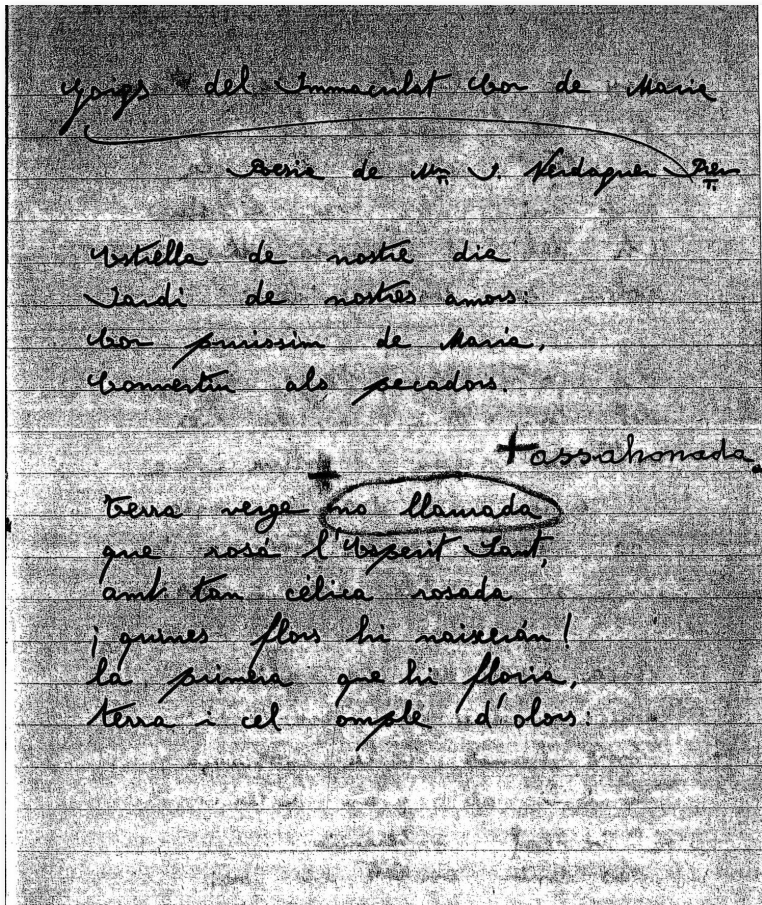 Goigs del Immaculat Cor de Maria
Poesia de Mn J. Verdaguer Pre
Estrella de nostre dia
Jardi de nostres amors:
Cor purissim de Maria,
Convertiu als pecadors.
+ assahonada
+
terra verge no llaurada
que rosá l'Esperit Sant,
amb tan célica rosada
¡quines flors hi naixerán!
la primera que hi floria,
terra i cel omple d'olors: